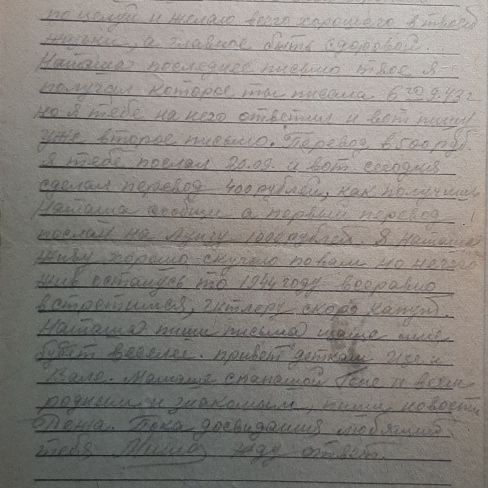 поцелуй и желаю всего хорошего в твоей
жизни, а главное быть здоровой.
Наташа последнее письмо твое я
получил которое ты писала 6 го 9.43 г
но я тебе на него ответил и вот пишу
уже второе письмо. Перевод в 500 руб
я тебе послал 20.09. и вот сегодня
сделал перевод 400 рублей, как получишь
Наташа сообщи а первый перевод
послал на 1000 рублей. Я Наташа
живу хорошо скучаю по вам но ничего
жив останусь то 1944 году всеравно
встретимся, Гитлеру скоро капут.
Наташа пиши письма чаще мне
будет веселей. привет деткам и
Вале. Мамаше с папашой и всем
родным и знакомым, пиши новости
Дона. Пока досвидания любящий
тебя Миша жду ответ.